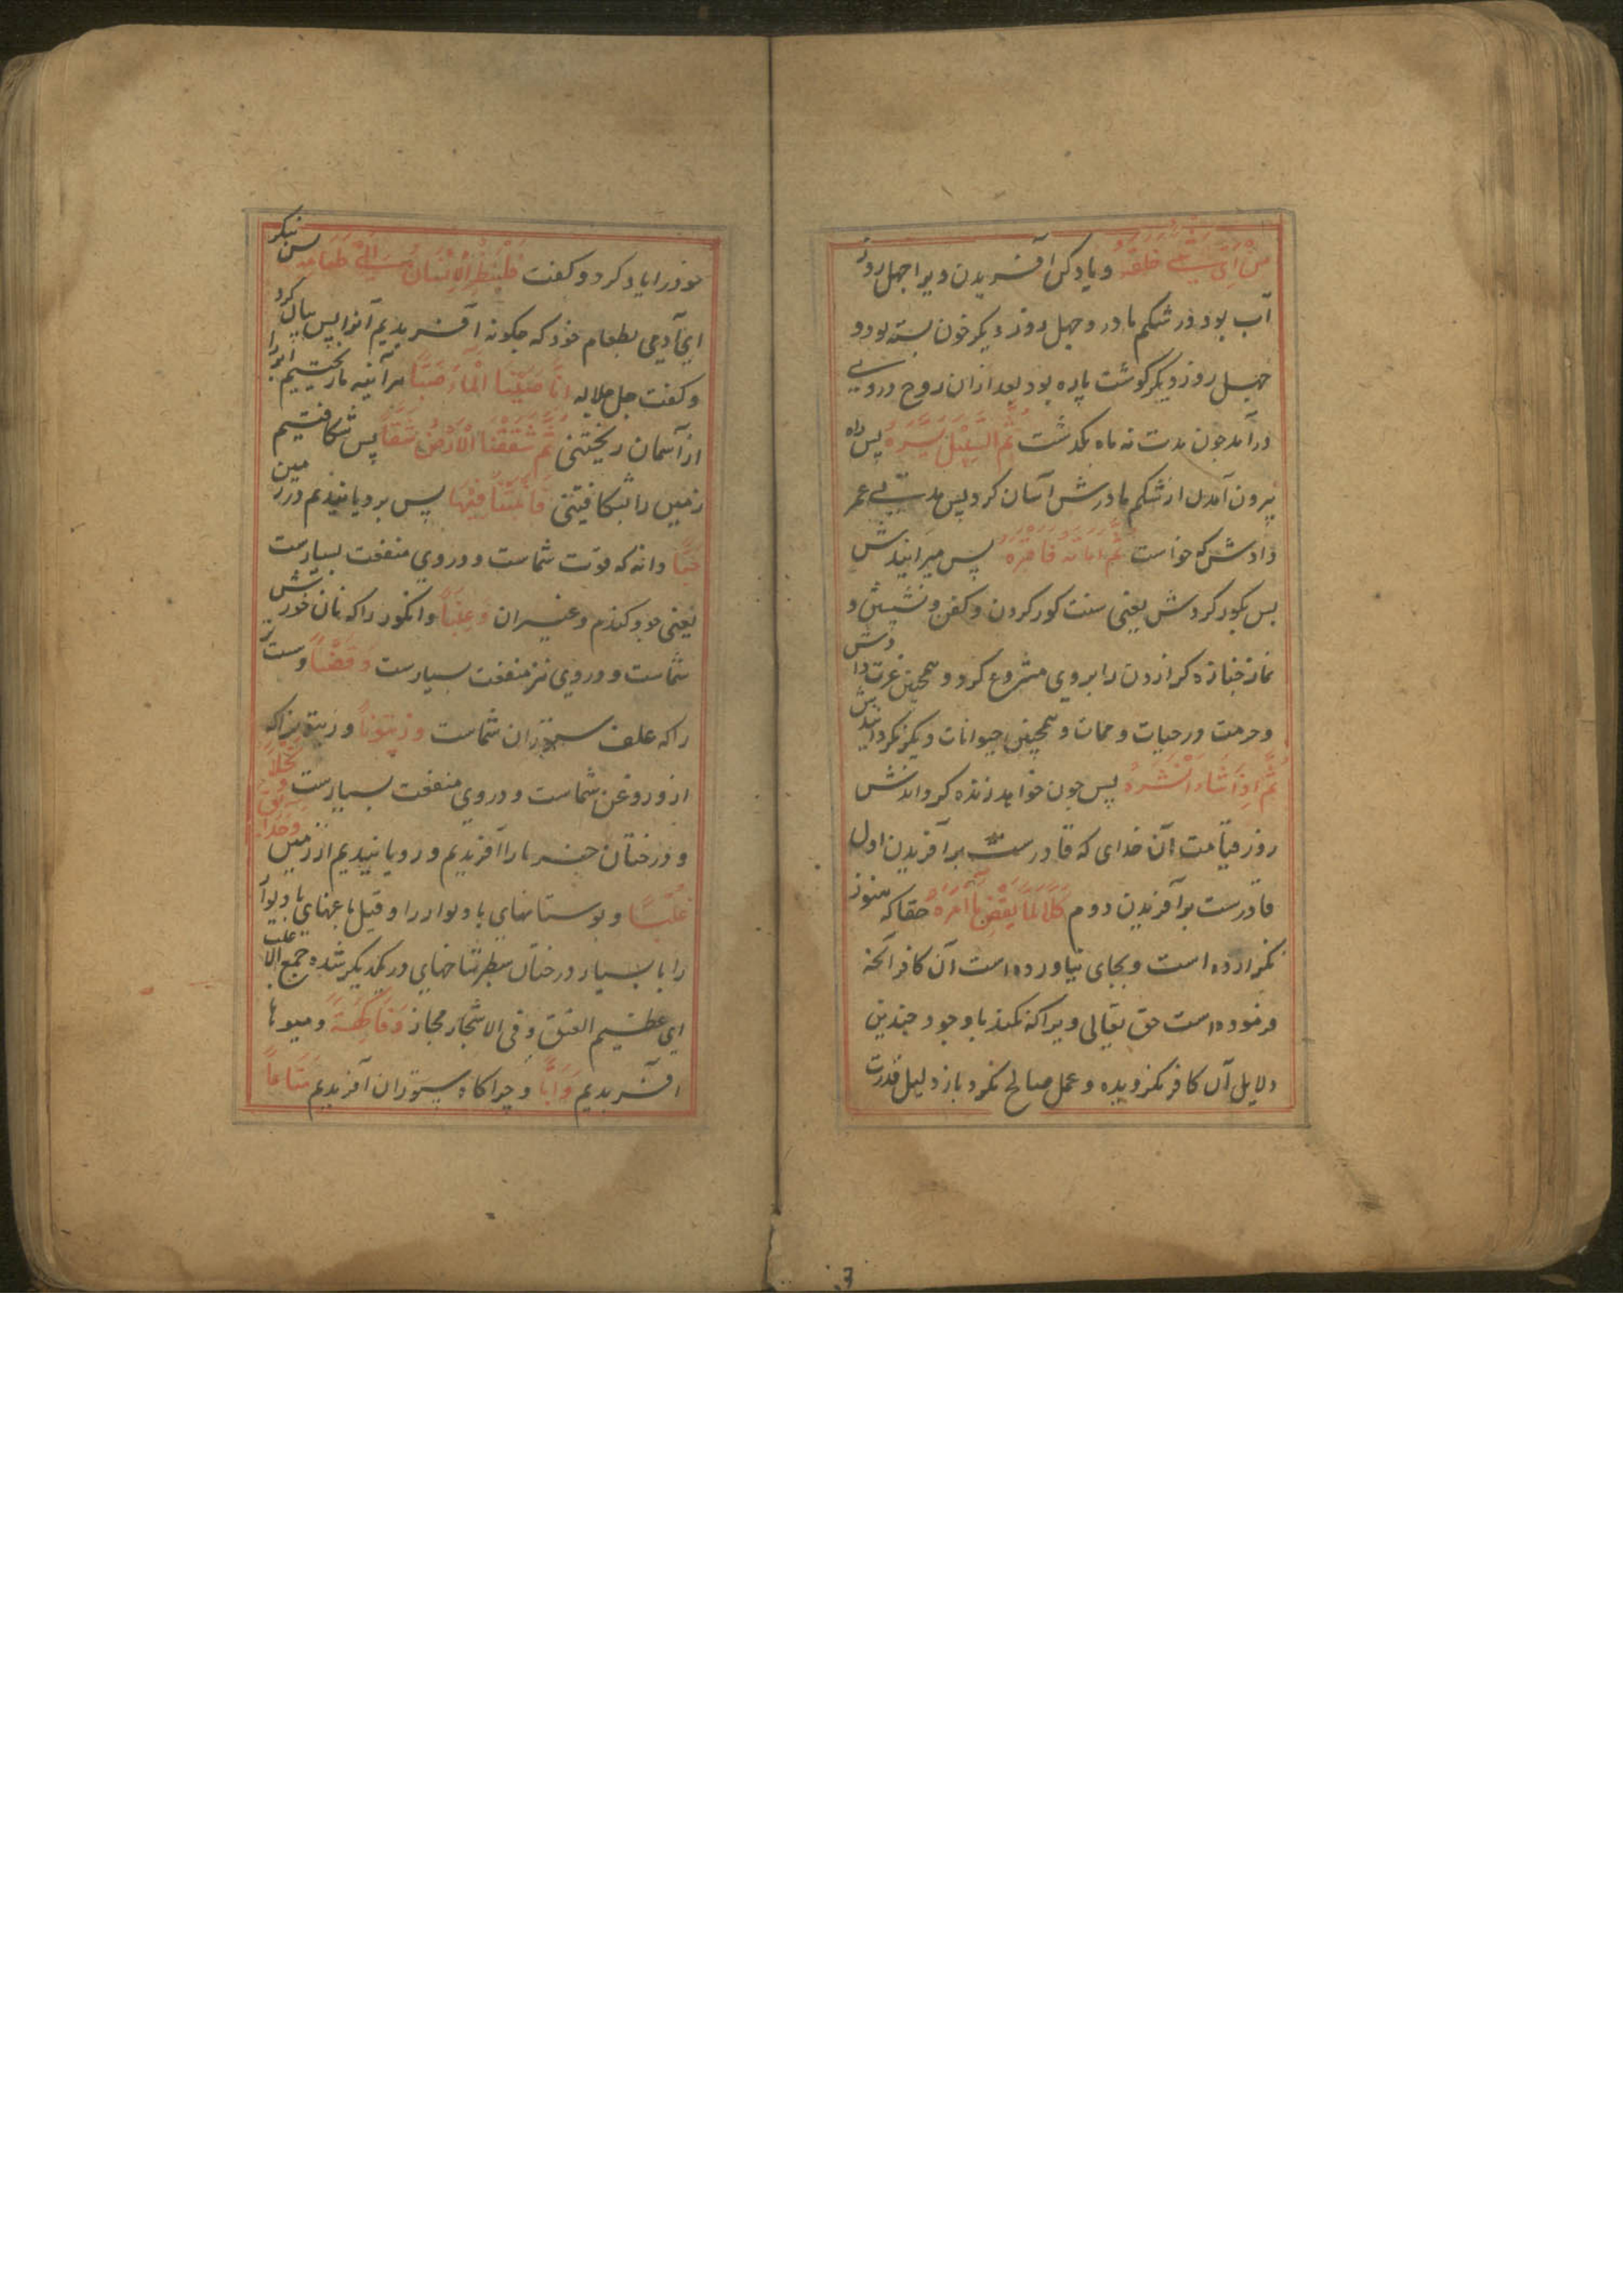 من أي شيء خلقه و یاد کن آفریدن ویرا چهل روز
آب بود در شکم مادر و چهل روز دیکر خون بسته بود و
چهل روز دیکر کوشت پاره بود بعد ازان روح در وی
درآمد چون مدت نه ماه بکذشت ثُمَّ السَّبِیْلَ یَسَّرَهُ پس راه
بیرون آمدن از شکم مادرش آسان کرد پس مدت عمر
دادش که خواست ثُمَّ اَمَاتَهُ فَاَقْبَرَهُ پس میرانیدش
پس بکور کردش یعنی سنت کور کردن و کفن و
نماز جنازه کزاردن را بر وی مشروع کرد و همچنین عزت دادش
و حرمت در حیات و ممات و همچنین حیوانات دیکر نکردانیدش
ثُمَّ اِذَا شَاءَ اَنْشَرَهُ پس چون خواهد زنده کرداندش
روز قیامت آن خدای که قادرست بر آفریدن اول
قادرست بر آفریدن دوم کَلَّا لَمَّا یَقْضِ مَا اَمَرَهُ حقا که هنوز
نکزارده است و بجای نیاورده است آن کافر آنچه
فرموده است حق تعالی ویرا که نکند با وجود چندین
دلایل آن کافر نکرویده و عمل صالح نکرد باز دلیل قدرت
خود را یاد کرد و کفت فَلْیَنْظُرِ الْاِنْسَانُ اِلٰی طَعَامِهِ پس بنکر
ای آدمی بطعام خود که چکونه آفریدیم آنرا پس بیان کرد
و کفت جل جلاله اَنَّا صَبَبْنَا الْمَاءَ صَبًّا هرآینه ما ریختیم آب را
از آسمان ریختنی ثُمَّ شَقَقْنَا الْاَرْضَ شَقًّا پس شکافتیم
زمین را شکافتنی فَاَنْبَتْنَا فِیْهَا پس برویانیدیم در زمین
حَبًّا دانه که قوت شماست و در وی منفعت بسیارست
یعنی جو و کندم و غیر آن وَعِنَبًا و انکور را که نان خورش
شماست و در وی نیز منفعت بسیارست وَقَضْبًا و سست تر
را که علف ستوران شماست وَزَیْتُوْنًا و زیتون را که
ازو روغن شماست و در وی منفعت بسیارست وَنَخْلًا
و درختان خرما را آفریدیم و رویانیدیم از زمین وَحَدَائِقَ
غُلْبًا و بوستانهای با دیوار را و قیل باغهای با دیوار
را با بسیار درختان سطبر شاخهای در یکدیکر شده جمع الاغلب
ای عظیم العنق و فی الاشجار مجاز وَفَاکِهَةً و میوها
آفریدیم وَاَبًّا و چراکاه ستوران آفریدیم مَتَاعًا